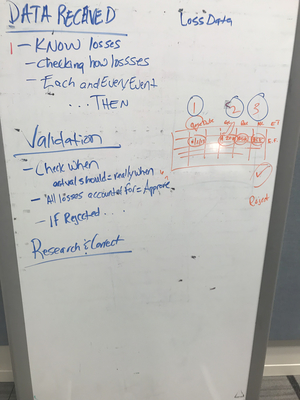 DATA RECAVED
Loss Data
1 - KNOW losses
- Checking how lossses
- Each and Every Event
... THEN
1 2 3
Validation
- Check when
actual should = really when
- All losses accounted for = Approve
- IF Rejected ...
Reject
Research & Correct